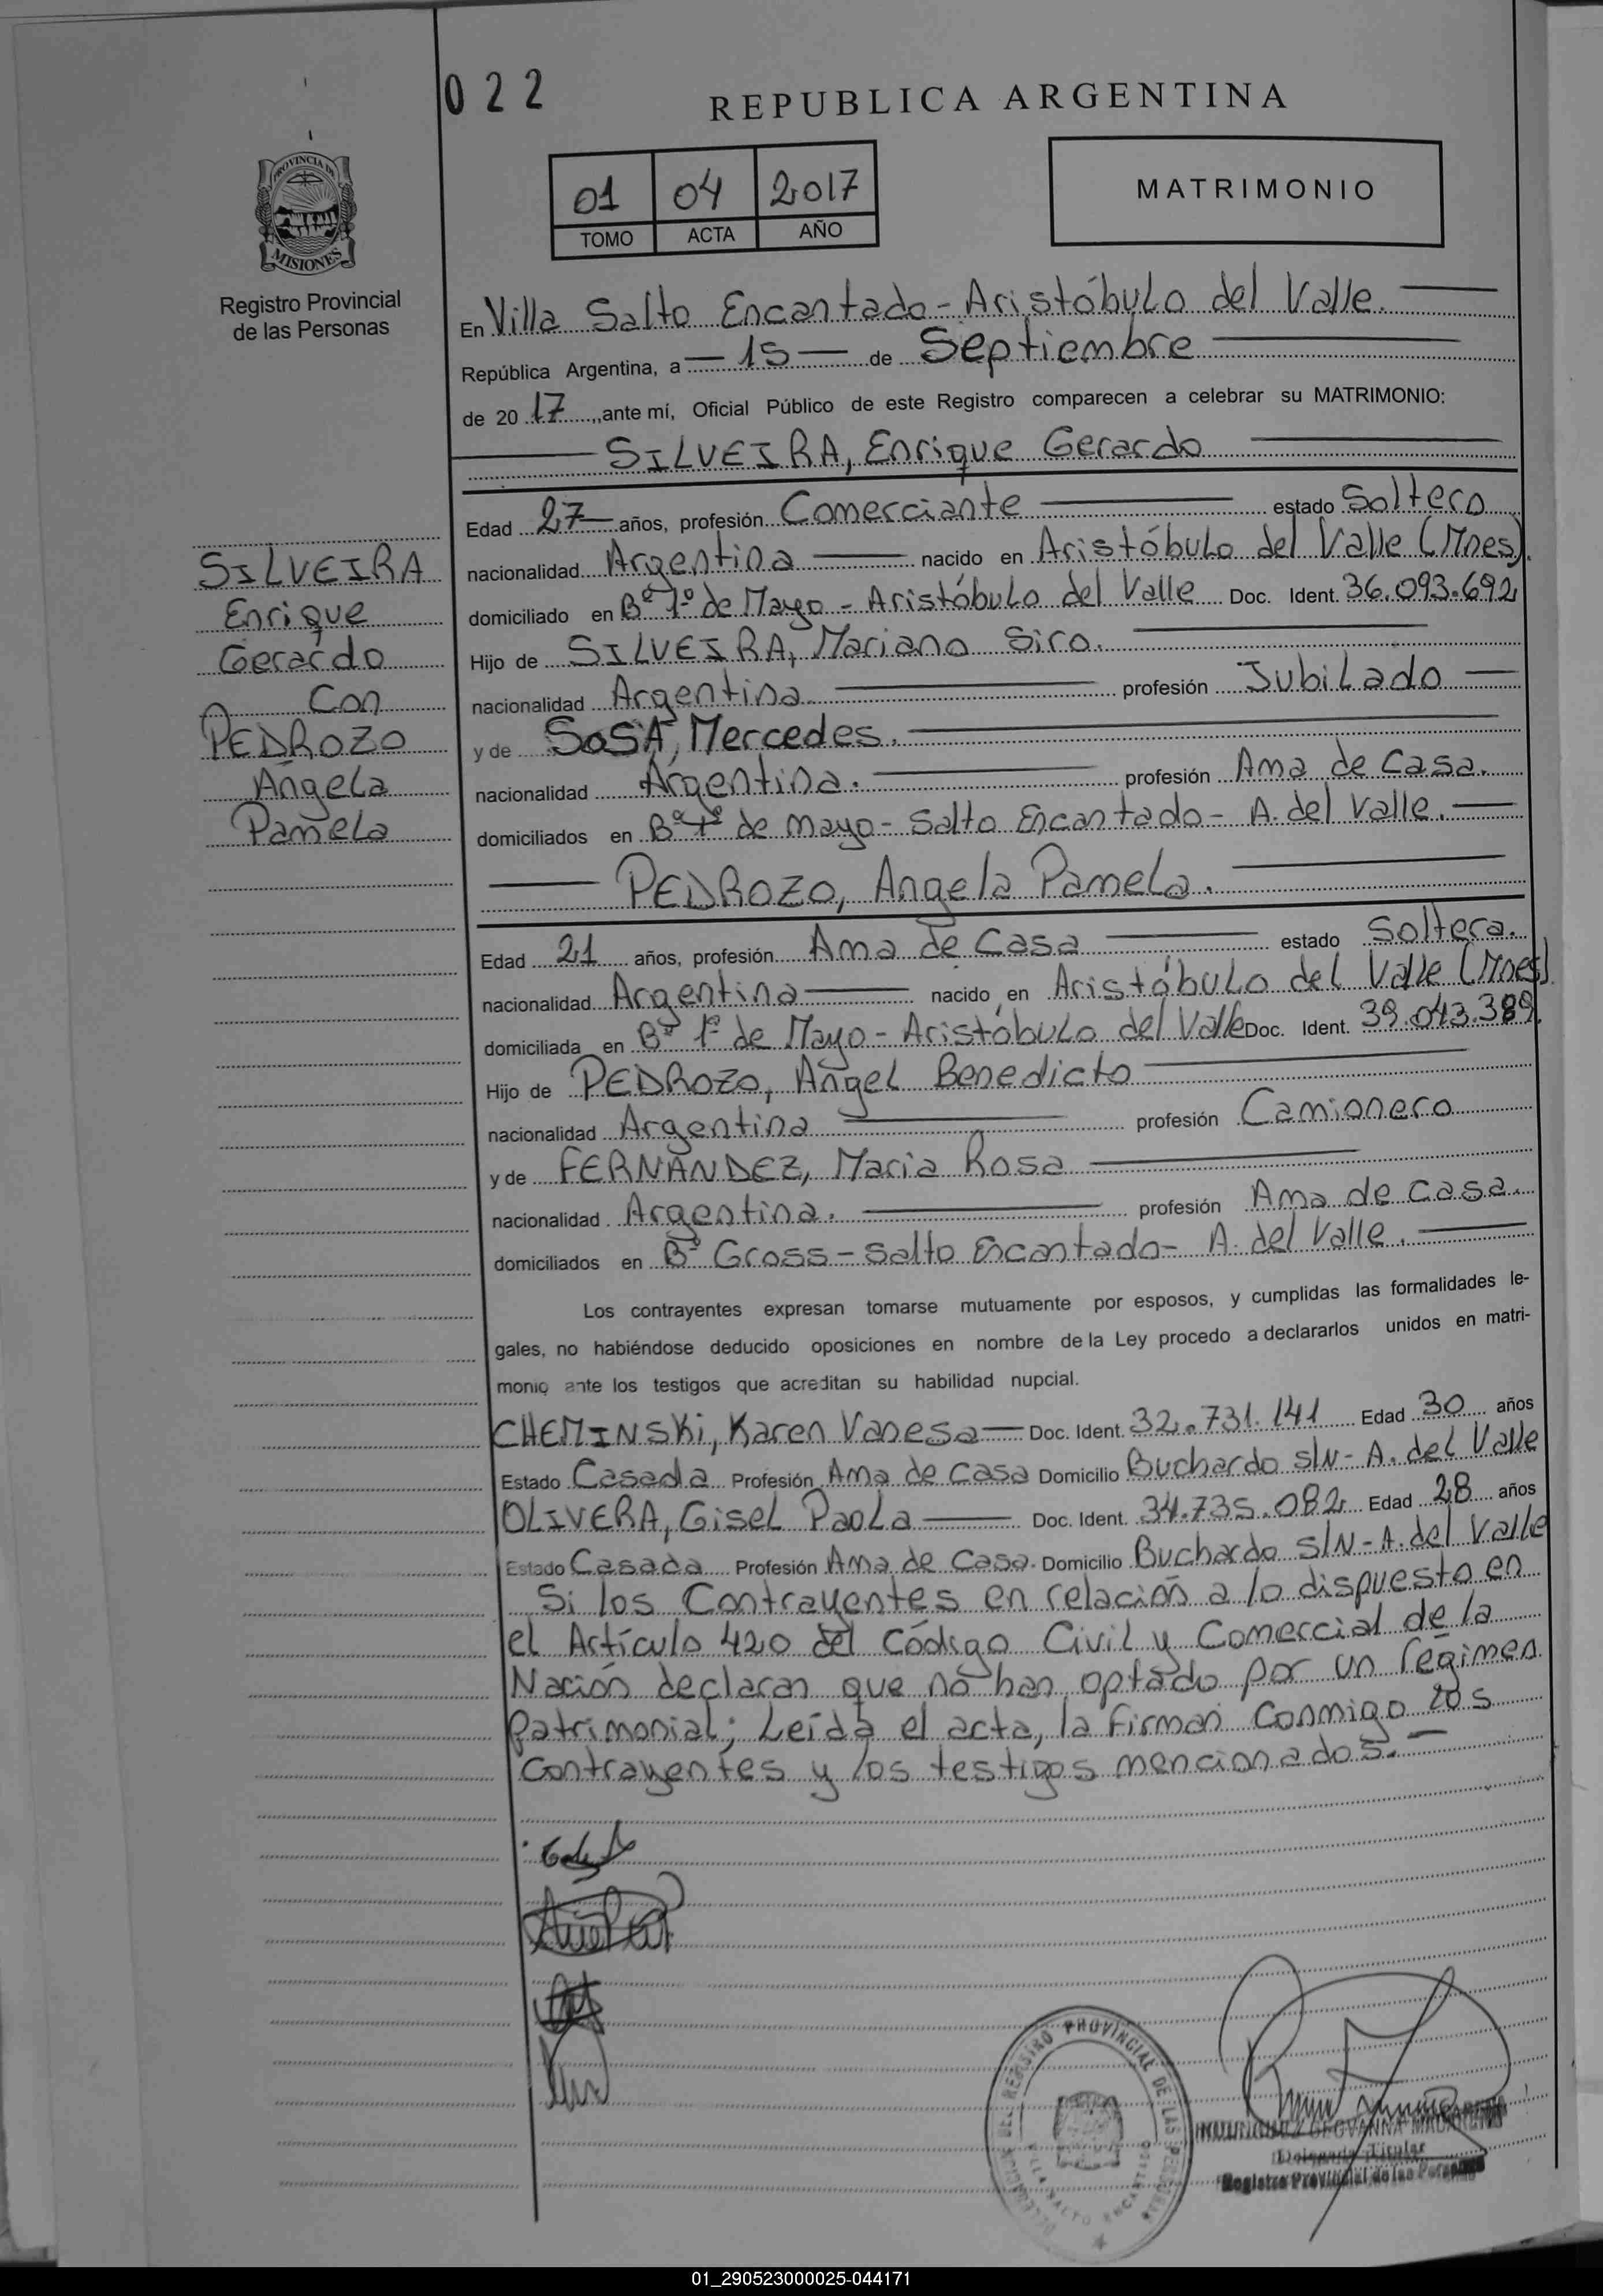 022
REPUBLICA ARGENTINA
PROVINCIA DE
MISIONES
Registro Provincial
de las Personas
01 04 2017
TOMO ACTA AÑO
MATRIMONIO
En Villa Salto Encantado - Aristóbulo del Valle.
República Argentina, a 15 de Septiembre
de 20 17, ante mí, Oficial Público de este Registro comparecen a celebrar su MATRIMONIO:
SILVEIRA, Enrique Gerardo
Edad 27 años, profesión Comerciante estado Soltero
nacionalidad Argentina nacido en Aristóbulo del Valle (Mnes).
domiciliado en Bº 1º de Mayo - Aristóbulo del Valle Doc. Ident. 36.093.692
Hijo de SILVEIRA, Mariano Siro.
nacionalidad Argentina profesión Jubilado
y de SOSA, Mercedes.
nacionalidad Argentina. profesión Ama de Casa.
domiciliados en Bº 1º de Mayo - Salto Encantado - A. del Valle.
SILVEIRA
Enrique
Gerardo
Con
PEDROZO
Angela
Pamela
PEDROZO, Angela Pamela.
Edad 21 años, profesión Ama de Casa estado Soltera.
nacionalidad Argentina nacido en Aristóbulo del Valle (Mnes)
domiciliada en Bº 1º de Mayo - Aristóbulo del Valle Doc. Ident. 39.043.389.
Hijo de PEDROZO, Angel Benedicto
nacionalidad Argentina profesión Camionero
y de FERNANDEZ, Maria Rosa
nacionalidad Argentina. profesión Ama de Casa.
domiciliados en Bº Gross - Salto Encantado - A. del Valle.
Los contrayentes expresan tomarse mutuamente por esposos, y cumplidas las formalidades le-
gales, no habiéndose deducido oposiciones en nombre de la Ley procedo a declararlos unidos en matri-
monio ante los testigos que acreditan su habilidad nupcial.
CHEMINSKi, Karen Vanesa Doc. Ident. 32.731.141 Edad 30 años
Estado Casada Profesión Ama de Casa Domicilio Buchardo S/N - A. del Valle
OLIVERA, Gisel Paola Doc. Ident. 34.735.082 Edad 28 años
Estado Casada Profesión Ama de Casa. Domicilio Buchardo S/N - A. del Valle
Si los Contrayentes en relación a lo dispuesto en
el Artículo 420 del Código Civil y Comercial de la
Nación declaran que no han optado por un régimen
patrimonial; Leída el acta, la firman Conmigo los
Contrayentes y los testigos mencionados.-
REGISTRO PROVINCIAL DE LAS PERSONAS
VILLA SALTO ENCANTADO
GEOVANNA
Delegada Titular
Registro Provincial de las Personas
01_290523000025-044171